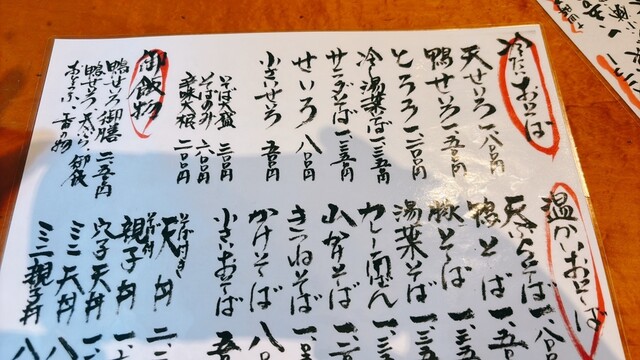 冷たいおそば
天せいろ 一、八〇〇円
鴨せいろ 一、五〇〇円
とろろ 一、一〇〇円
冷し湯葉そば 一、三五〇円
サラダそば 一、三五〇円
せいろ 八〇〇円
小さいせいろ 五〇〇円
そば大盛 三〇〇円
そばのみ 六〇〇円
辛味大根 二〇〇円
御飯物
鴨せいろ御膳 二、二五〇円
鴨せいろ 天ぷら 御飯
香の物
温かいおそば
天ぷらそば 一、八〇
鴨そば 一、五〇
豚そば 一、
湯葉そば 一、三五
カレー南ばん 一、三
山かけそば 一、二
きつねそば 一、
かけそば 八〇
小さいおそば 五
そば付き
天丼 二、
そば付
親子丼 一、
穴子天丼 一、
ミニ天丼 八
ミニ親子丼 八